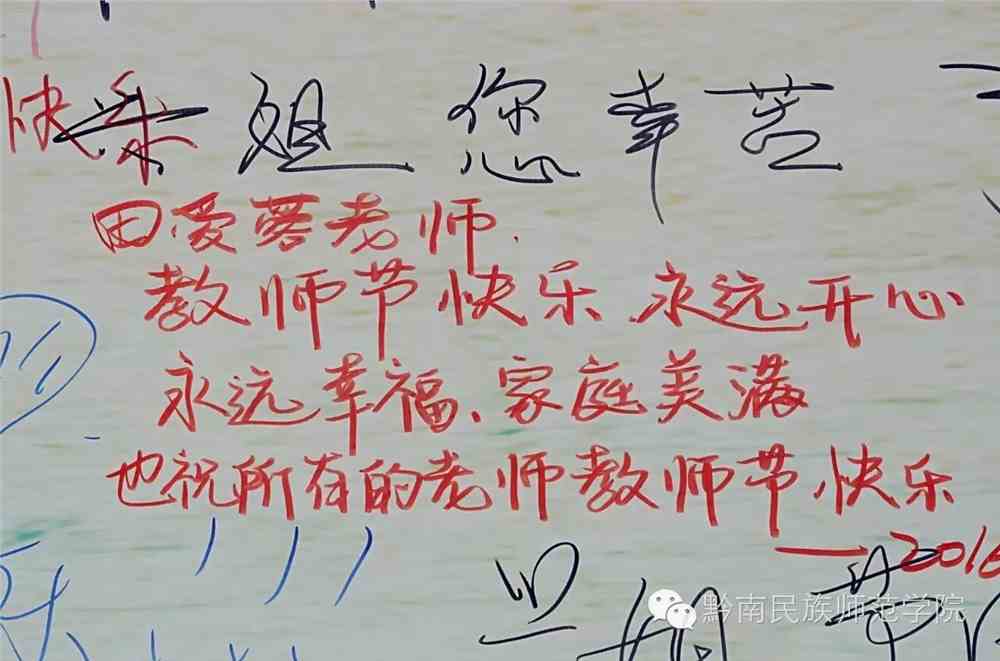 快乐 姐 您 幸 苦
田爱蓉老师.
教师节快乐 永远开心
永远幸福、家庭美满
也祝所有的老师教师节快乐
——2016
黔南民族师范学院